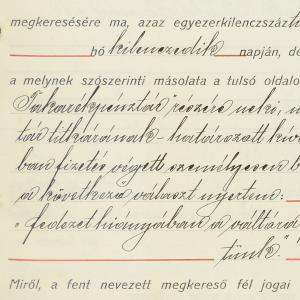 megkeresésére ma, azaz egyezerkilenczszáz
hó kilenczedik napján, de
a melynek szószerinti másolata a tulsó oldalo
Takarékpénztár" részére neki, m
tár titkárának - határozott kivá
ban fizetés végett személyesen b
a következő választ nyertem:
"fedezet hiányában a váltó
tünk."
Miről, a fent nevezett megkereső fél jogai